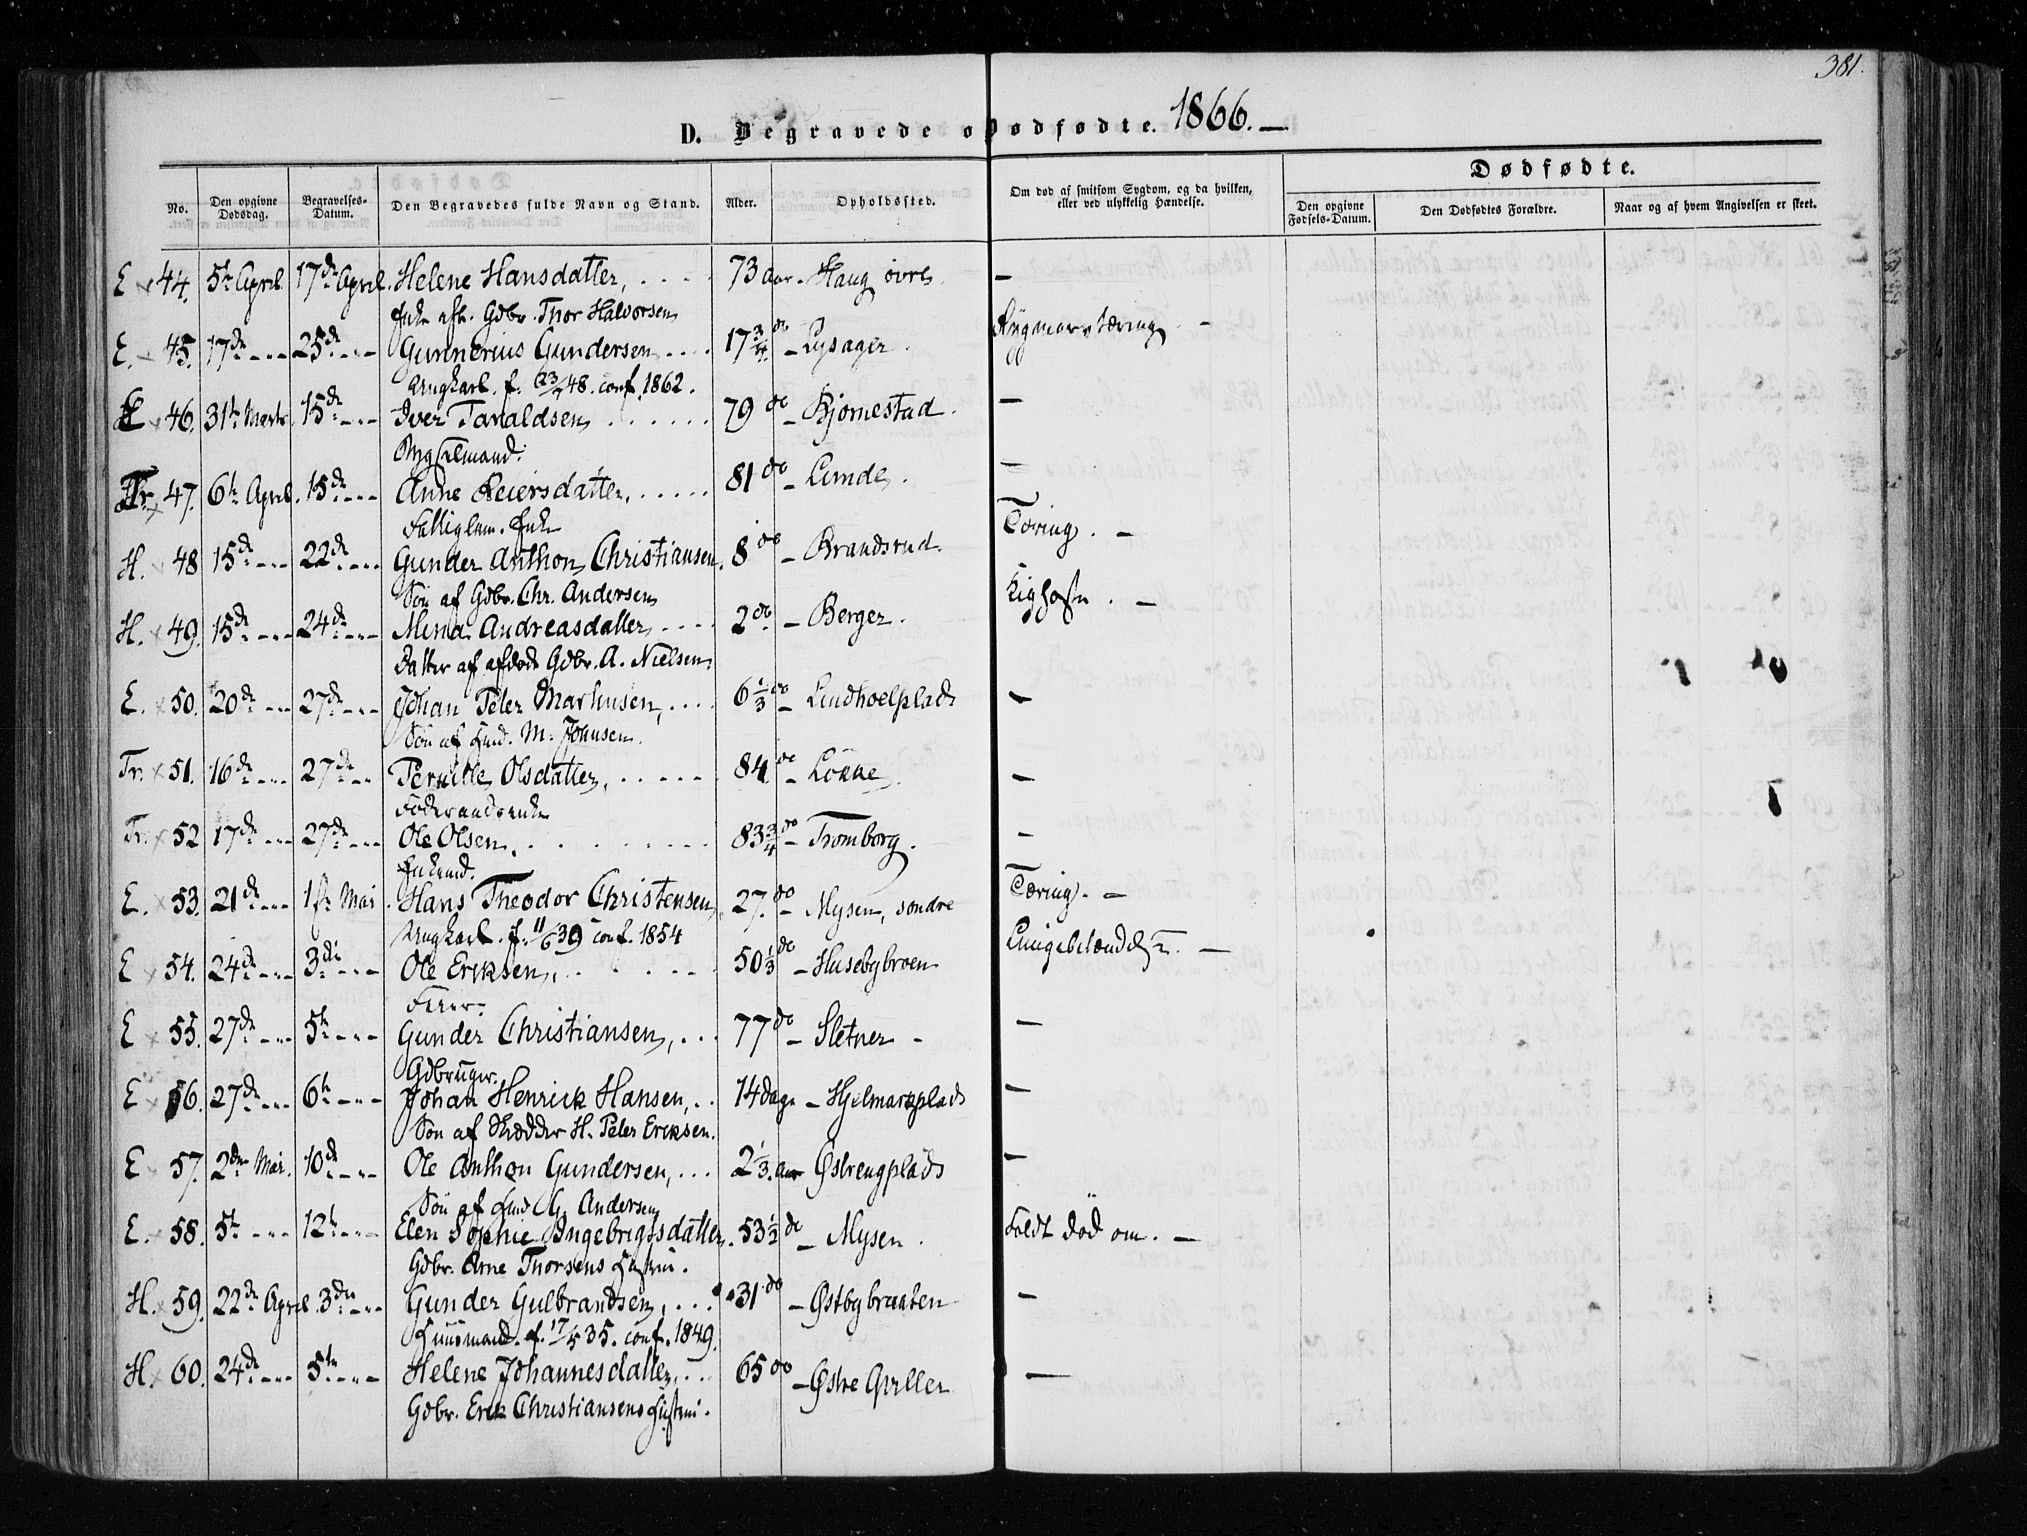 381.
D. Begravede o Dødfødte. 1866. —
Dødfødte.
No. Den opgivne Dødsdag. Begravelses-Datum. Den Begravedes fulde Navn og Stand. Alder. Opholdssted. Om død af smitsom Sygdom, og da hvilken, eller ved ulykkelig Hændelse. Den opgivne Fødsels-Datum. Den Dødfødtes Forældre. Naar og af hvem Angivelsen er skeet.
E × 44. 5te April 17de April. Helene Hansdatter, 73 aar - Haug øvre —
Enke efter Gdbr. Thor Halvorsen
E. 45. 17de 25de Gunnerius Gundersen 17 3/4 do - Lysager. Rygmarvstæring —
Ungkarl. f. 23/7 48. conf. 1862.
E × 46. 31te Marts 15de Iver Taraldsen 79 do - Bjørnestad. —
Bygselmand.
Tr. × 47. 6te April. 15de Anne Reiersdatter, 81 do - Lunde. —
Fattiglem. Enke
H. × 48 15de 22de Gunder Anthon Christiansen. 8 do - Brandsrud. Tæring. —
Søn af Gdbr. Chr. Andersen
H. × 49. 15de 24de Mina Andreasdatter 2 do - Berger. Kighoste. —
Datter af afdøde Gdbr. A. Nielsen
E. × 50. 20de 27de Johan Peter Markusen, 6 1/3 do - Lindhoelplads —
Søn af Husmd. M. Johnsen.
Tr. × 51. 16de 27de Pernille Olsdatter, 84 do - Løkke —
Føderaadsenke
Tr. × 52 17de 27de Ole Olsen, 83 3/4 do - Tromborg. —
Enkemd.
E. × 53. 21de 1ste Mai Hans Theodor Christensen, 27. do - Mysen, søndre Tæring. —
Ungkarl. f. 11/6 39 conf. 1854
E × 54. 24de 3die Ole Eriksen, 50 1/3 do - Husebybroen Lungebetændelse. —
E × 55. 27de 5te Gunder Christiansen, 77 do - Sletner —
Gdbruger.
E × 56. 27de 6te Johan Henrick Hansen, 14 dage - Hjelmarkplads —
Søn af Skrædder H. Peter Eriksen.
E × 57. 2den Mai. 10de Ole Anthon Gundersen, 2 1/3. aar Østrengplads —
Søn af Husmd G. Andersen
E. × 58. 5te 12te Elen Sophie Ingebrigtsdatter. 53 1/2 do - Mysen. Faldt død om. —
Gdbr. Arne Thorsens Hustru.
H. × 59. 22de April. 3die Gunder Gulbrandsen, 31 do - Østbybraaten —
Huusmand. f. 17/5 35. conf. 1849.
H. × 60. 24de 5te Helene Johannesdatter, 65 do - Østre Gviller —
Gdbr. Erik Christiansens Hustru.